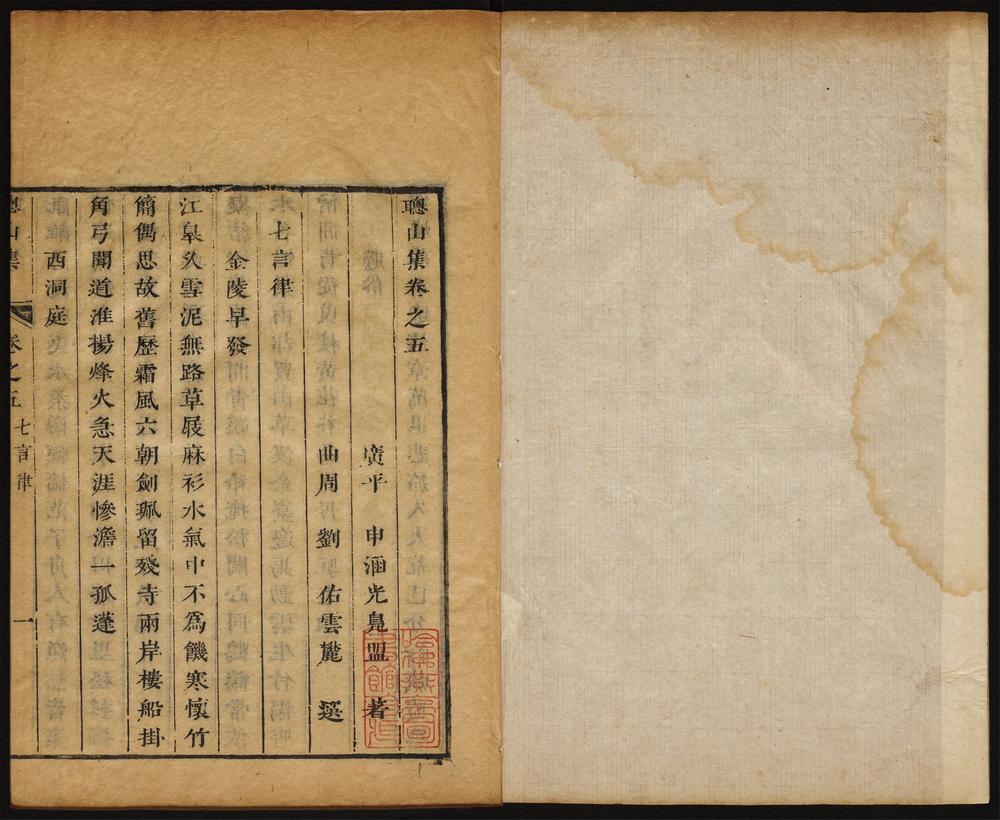 聰山集卷之五
廣平 申涵光鳧盟 著
曲周 劉佑雲麓 選
七言律
金陵早發
江皋久雪泥無路草屐麻衫水氣中不爲饑寒懷竹
簡偶思故舊歷霜風六朝劍珮留殘寺兩岸樓船掛
角弓聞道淮揚烽火急天涯慘澹一孤蓬
西洞庭
聰山集 卷之五 七言律 一